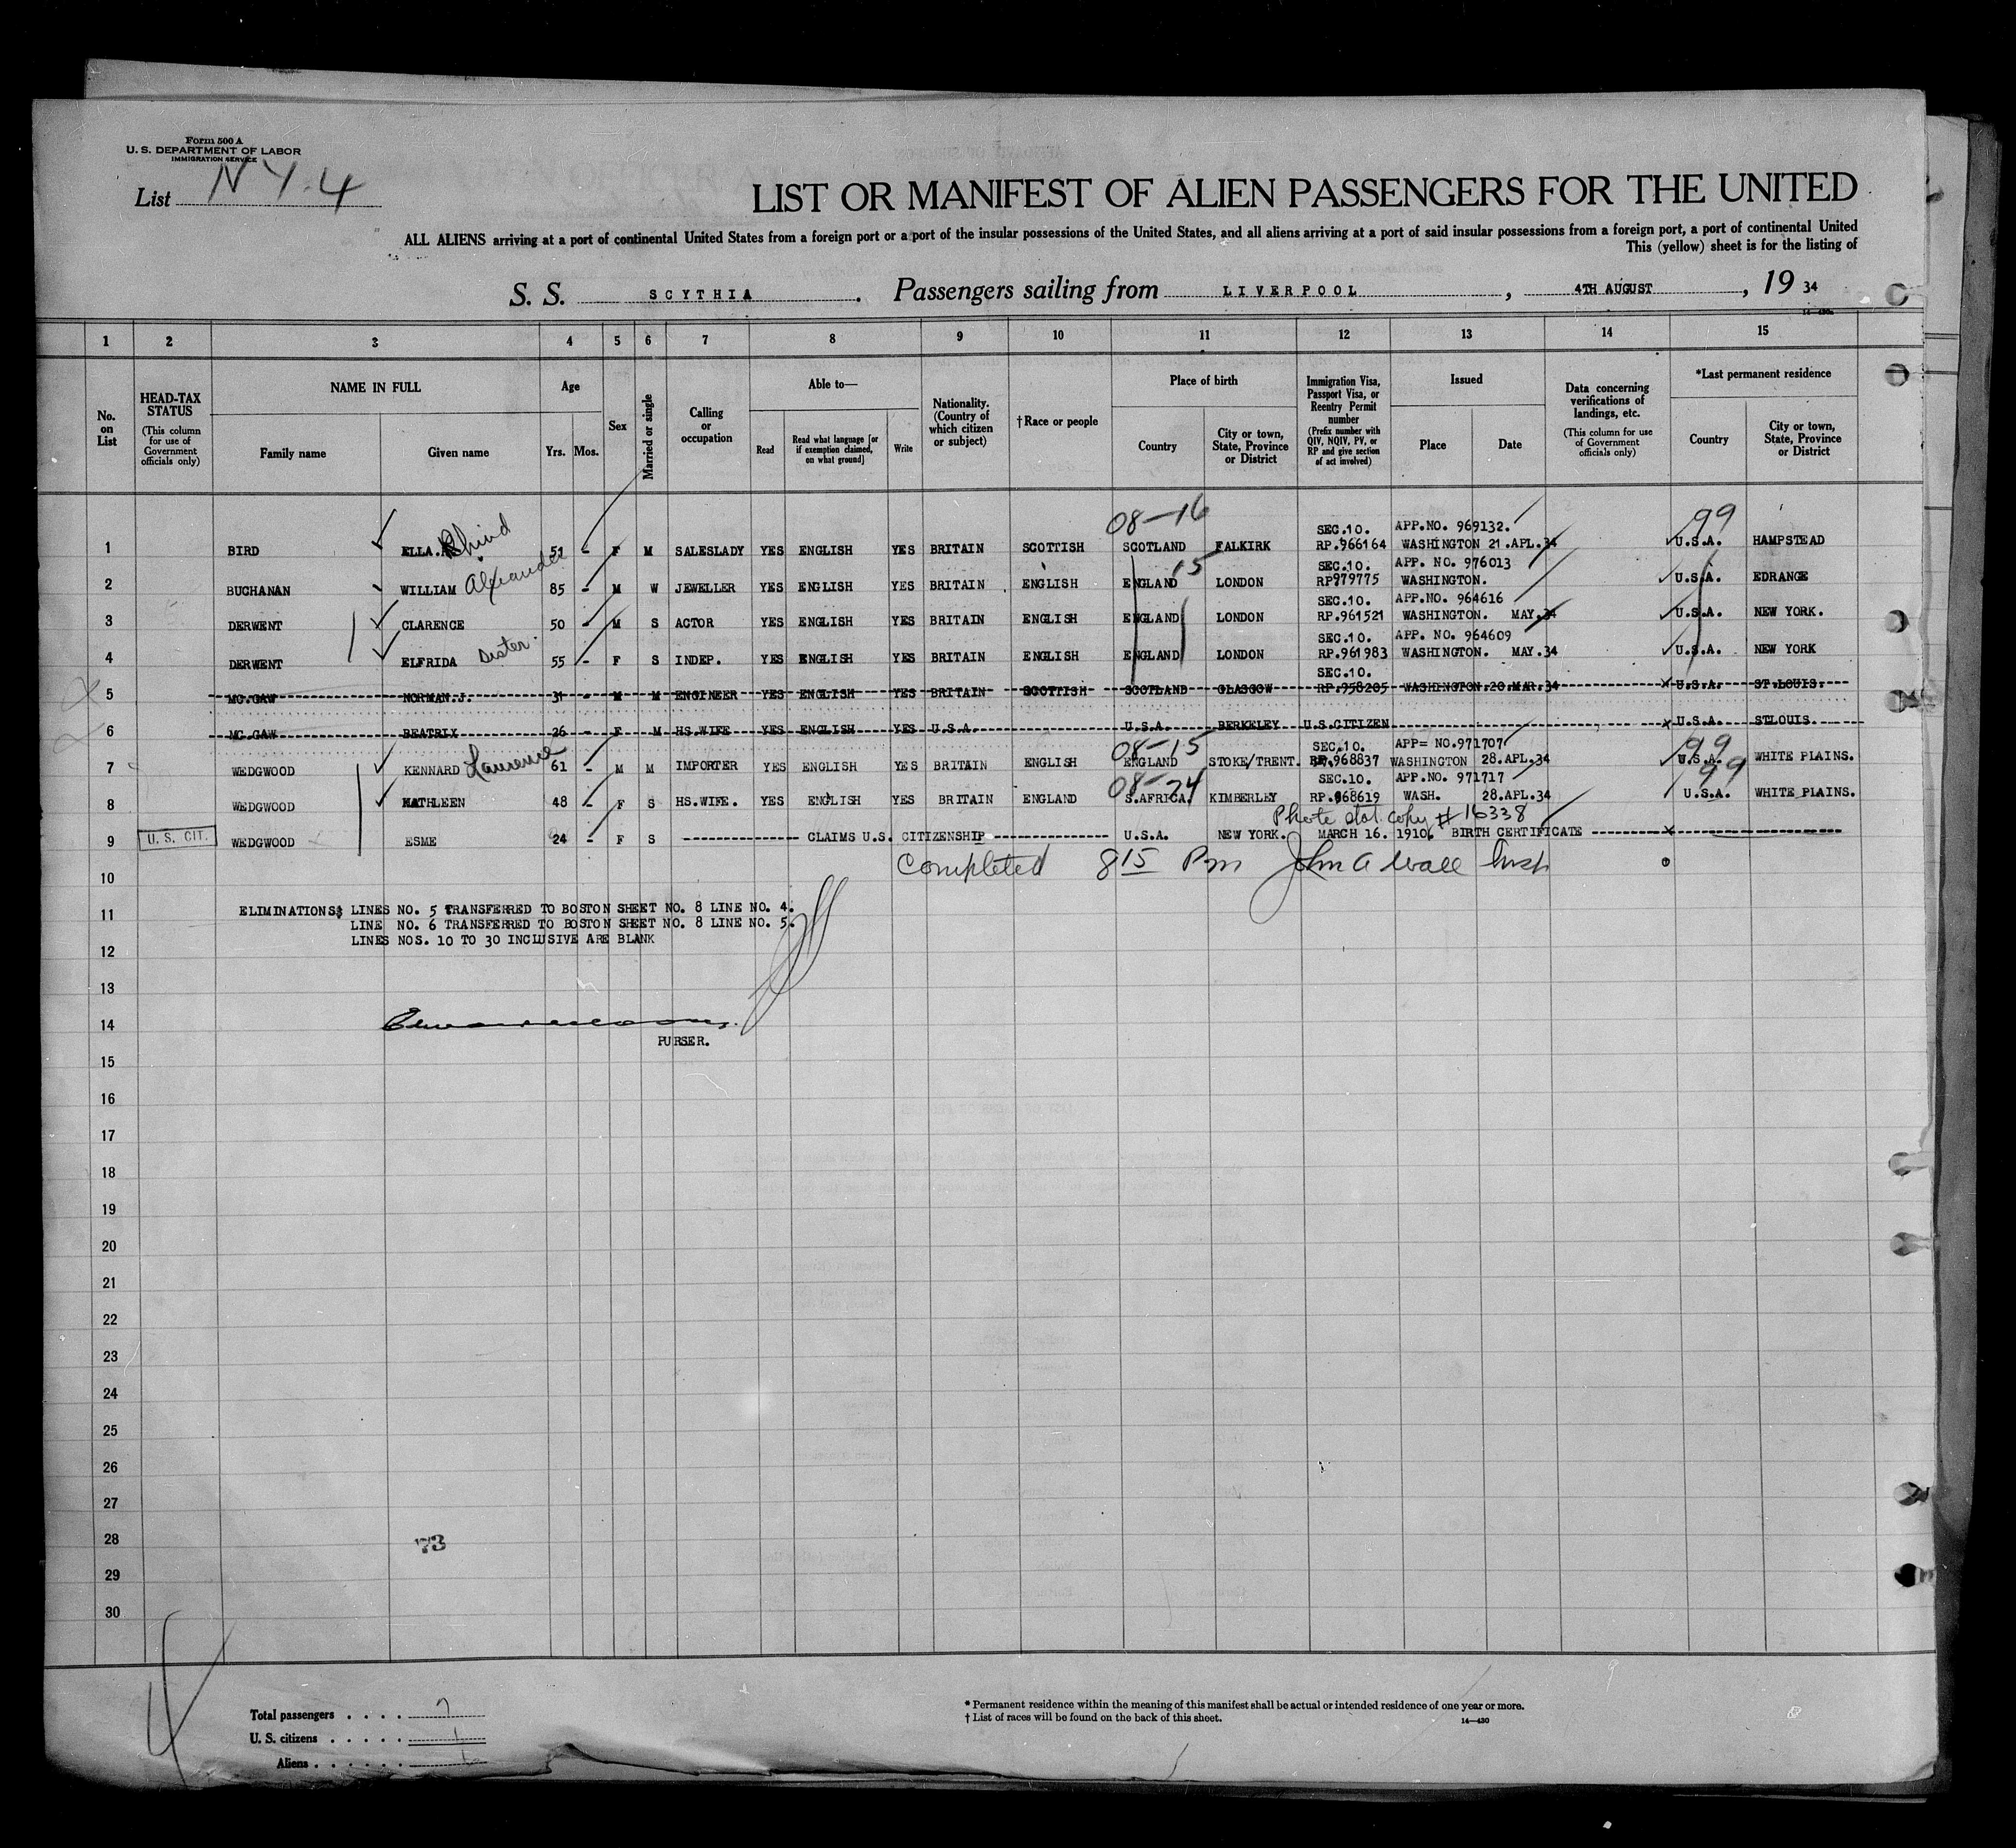 Form 500 A
U. S. DEPARTMENT OF LABOR
IMMIGRATION SERVICE
List N Y. 4
LIST OR MANIFEST OF ALIEN PASSENGERS FOR THE UNITED
ALL ALIENS arriving at a port of continental United States from a foreign port or a port of the insular possessions of the United States, and all aliens arriving at a port of said insular possessions from a foreign port, a port of continental United
This (yellow) sheet is for the listing of
S. S. SCYTHIA. Passengers sailing from LIVERPOOL, 4TH AUGUST, 19 34
1 2 3 4 5 6 7 8 9 10 11 12 13 14 15
No. on List
HEAD-TAX STATUS (This column for use of Government officials only)
NAME IN FULL
Family name Given name
Age
Yrs. Mos.
Sex
Married or single
Calling or occupation
Able to—
Read Read what language [or if exemption claimed, on what ground] Write
Nationality. (Country of which citizen or subject)
†Race or people
Place of birth
Country City or town, State, Province or District
Immigration Visa, Passport Visa, or Reentry Permit number (Prefix number with QIV, NQIV, PV, or RP and give section of act involved)
Issued
Place Date
Data concerning verifications of landings, etc. (This column for use of Government officials only)
*Last permanent residence
Country City or town, State, Province or District
08-16 99
SEC.10. APP.NO. 969132.
1 BIRD ELLA. Rhind 51 - F M SALESLADY YES ENGLISH YES BRITAIN SCOTTISH SCOTLAND FALKIRK RP.966164 WASHINGTON 21.APL.34 U.S.A. HAMPSTEAD
15 SEC.10. APP. NO. 976013
2 BUCHANAN WILLIAM Alexander 85 - M W JEWELLER YES ENGLISH YES BRITAIN ENGLISH ENGLAND LONDON RP979775 WASHINGTON. U.S.A. EDRANGE
SEC.10. APP.NO. 964616
3 DERWENT CLARENCE 50 - M S ACTOR YES ENGLISH YES BRITAIN ENGLISH ENGLAND LONDON RP.961521 WASHINGTON. MAY.34 U.S.A. NEW YORK.
SEC.10. APP. NO. 964609
4 DERWENT ELFRIDA Sister. 55 - F S INDEP. YES ENGLISH YES BRITAIN ENGLISH ENGLAND LONDON RP.961983 WASHINGTON. MAY.34 U.S.A. NEW YORK
SEC.10.
5 MC.GAW NORMAN.J. 31 - M M ENGINEER YES ENGLISH YES BRITAIN SCOTTISH SCOTLAND GLASGOW RP.958205 WASHINGTON.20.MAR.34 U.S.A. ST.LOUIS.
6 MC.GAW BEATRIX 26 - F M HS.WIFE YES ENGLISH YES U.S.A. U.S.A. BERKELEY U.S.CITIZEN U.S.A. STLOUIS
08-15 SEC.10. APP= NO.971707 99
7 WEDGWOOD KENNARD Laurence 61 - M M IMPORTER YES ENGLISH YES BRITAIN ENGLISH ENGLAND STOKE/TRENT. RP.968837 WASHINGTON 28.APL.34 U.S.A. WHITE PLAINS.
08-24 SEC.10. APP.NO. 971717 99
8 WEDGWOOD KATHLEEN 48 - F S HS.WIFE. YES ENGLISH YES BRITAIN ENGLAND S.AFRICA. KIMBERLEY RP.968619 WASH. 28.APL.34 U.S.A. WHITE PLAINS.
Photo stat. copy # 16338
9 U. S. CIT. WEDGWOOD ESME 24 - F S CLAIMS U.S. CITIZENSHIP U.S.A. NEW YORK. MARCH 16. 1910. BIRTH CERTIFICATE
Completed 8 15 Pm John A Wall Insp
10
11 ELIMINATIONS: LINES NO. 5 TRANSFERRED TO BOSTON SHEET NO. 8 LINE NO. 4.
LINE NO. 6 TRANSFERRED TO BOSTON SHEET NO. 8 LINE NO. 5.
LINES NOS. 10 TO 30 INCLUSIVE ARE BLANK
12
13
14
PURSER.
15
16
17
18
19
20
21
22
23
24
25
26
27
28 73
29
30
Total passengers . . . . 7
U. S. citizens . . . . . 1
Aliens . . . . . . 6
* Permanent residence within the meaning of this manifest shall be actual or intended residence of one year or more.
† List of races will be found on the back of this sheet.
14—430